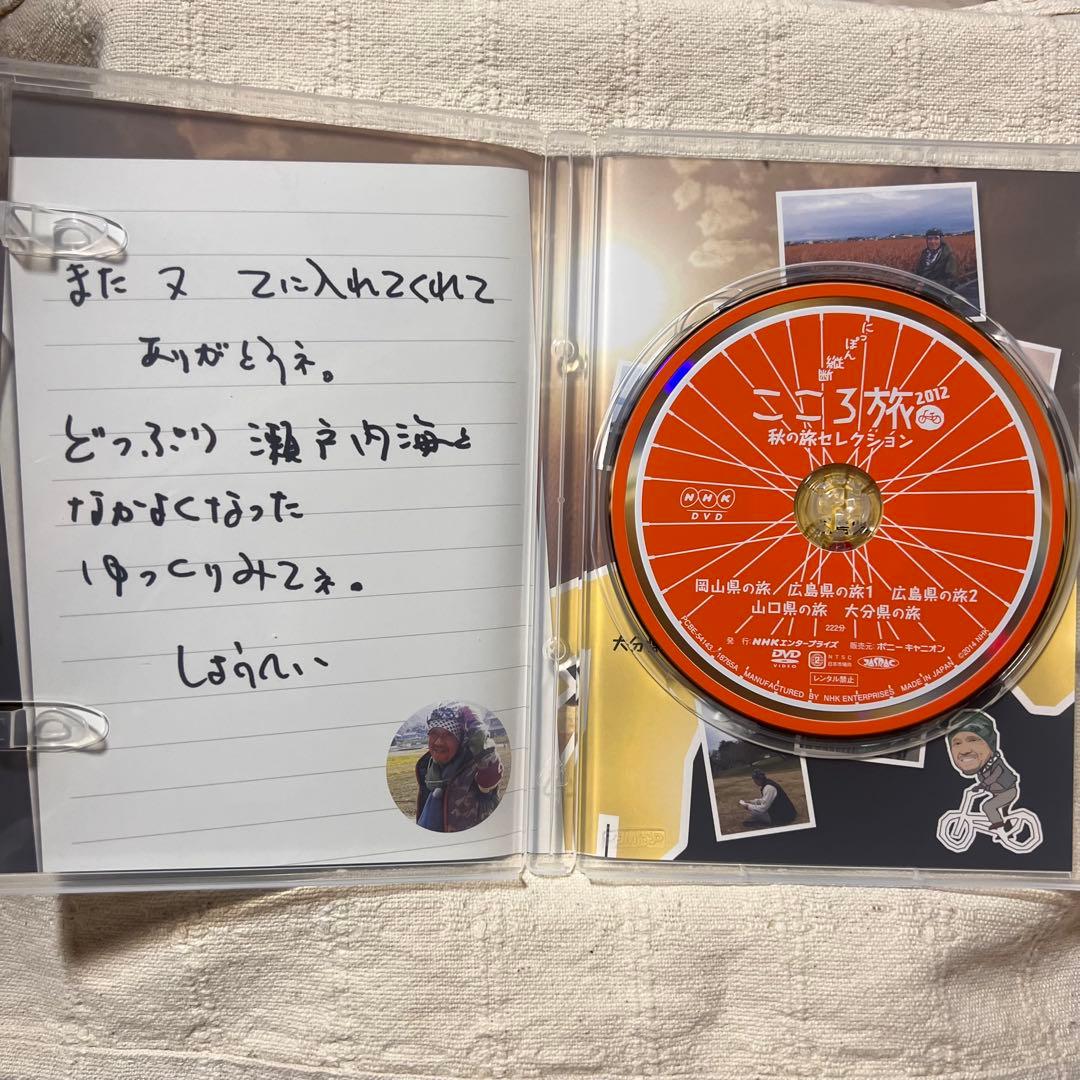 また 又 てに入れてくれて
ありがとうネ。
どっぷり 瀬戸内海と
なかよくなった
ゆっくりみてネ。
しょうへい
にっぽん
縦断
こころ旅 2012
秋の旅セレクション
NHK
DVD
岡山県の旅/広島県の旅1 広島県の旅2
山口県の旅 大分県の旅
222分
発行:NHKエンタープライズ 販売元:ポニーキャニオン
DVD VIDEO
NTSC
日本市場向
2
JASRAC
レンタル禁止
PCBE-54143 18765A MANUFACTURED BY NHK ENTERPRISES MADE IN JAPAN ©2014 NHK
大分